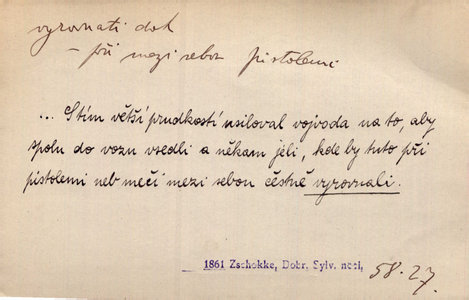 vyrovnati dok
– při mezi sebou pistolemi
... S tím větší prudkostí usiloval vojvoda na to, aby
spolu do vozu vsedli a někam jeli, kde by tuto při
pistolemi neb meči mezi sebou čestně vyrovnali.
1861 Zschokke, Dobr. Sylv. noci, 58.27.